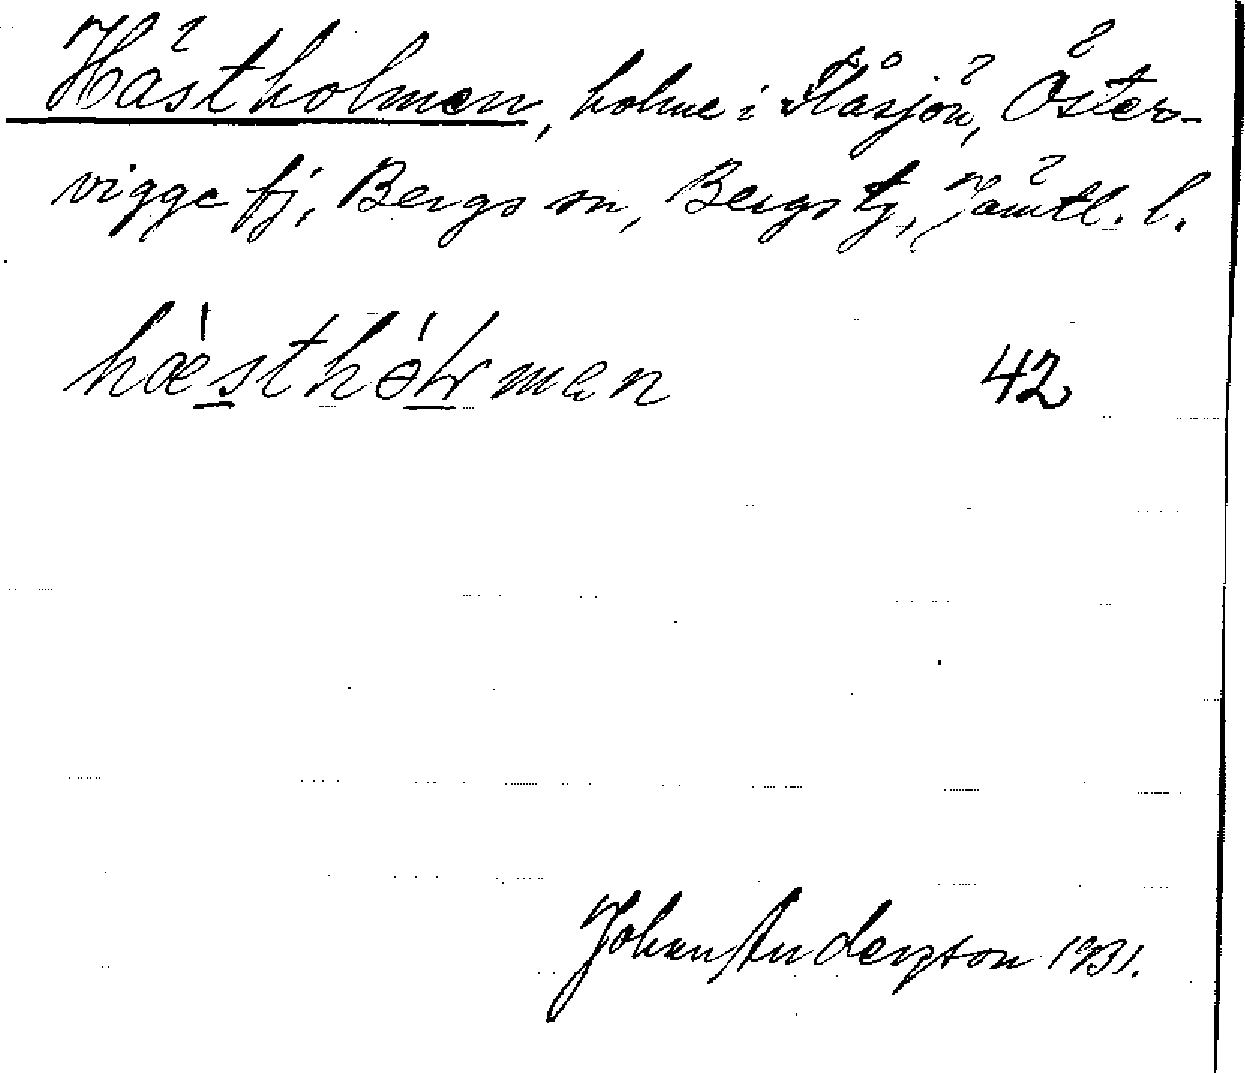 Hästholmen, holme i Flåsjön, Öster-
vigge fj, Bergs sn, Bergs tj, Jämtl. l.
hæsthólrmen 42
Johan Anderzton 1931.